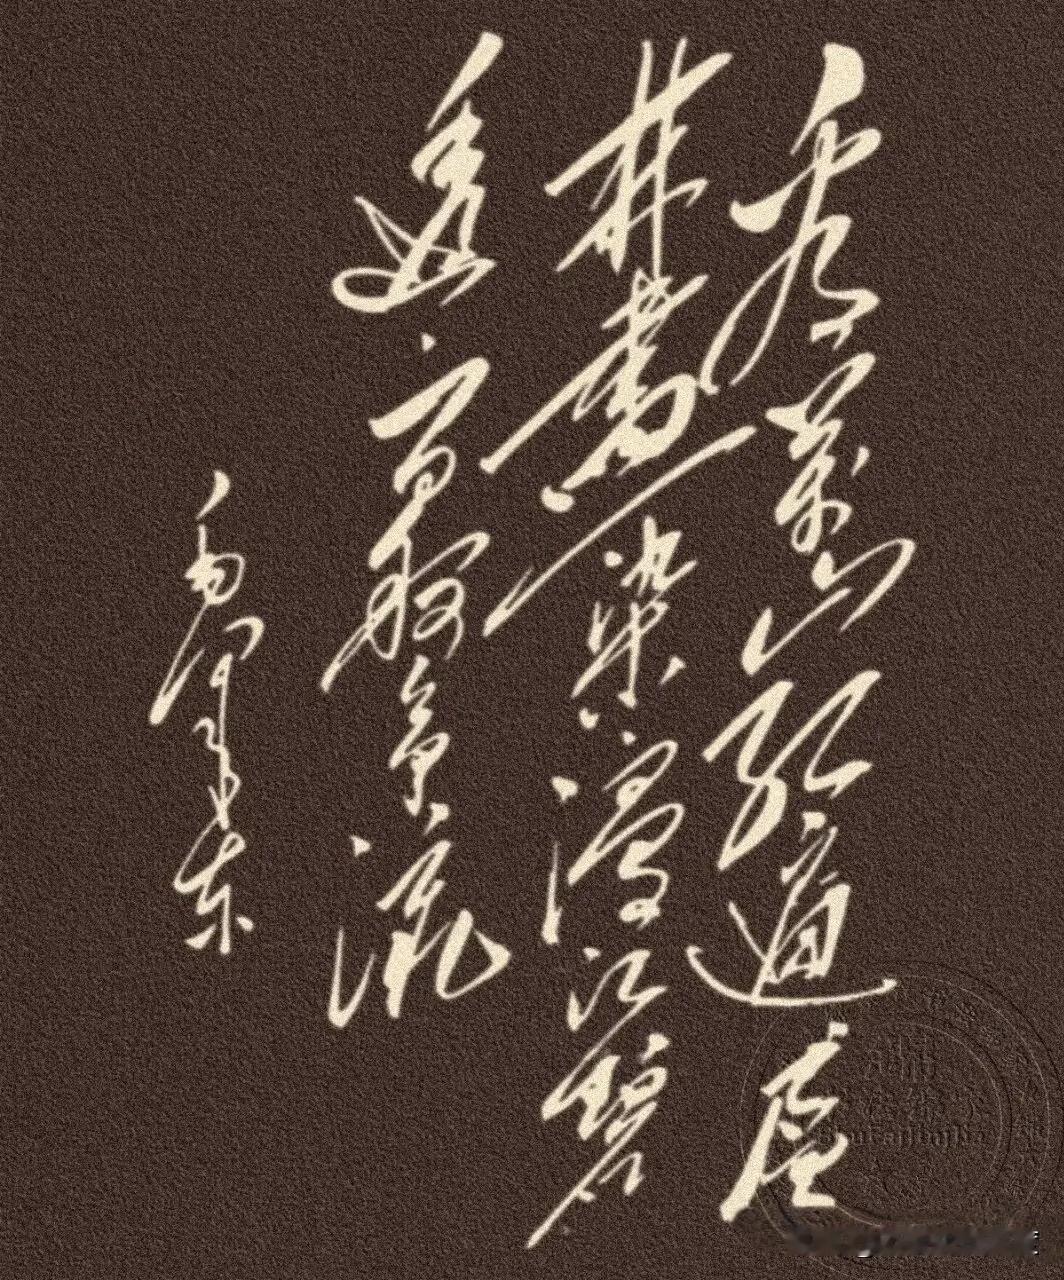 看萬山红遍層
林盡染漫江碧
透百舸争流
毛泽东